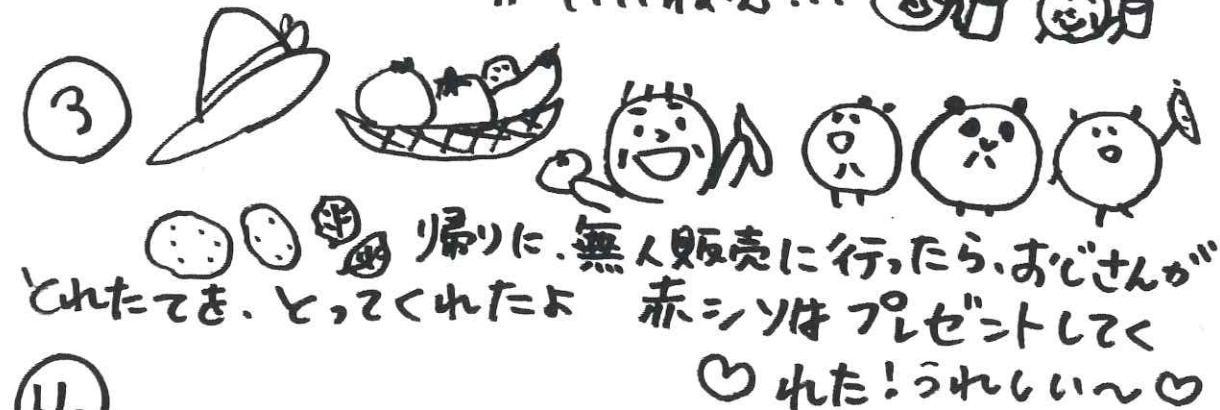 ③
帰りに、無人販売に行ったら、おじさんが
とれたてを、とってくれたよ 赤シソは プレゼントしてく
♡ れた!うれしい〜♡